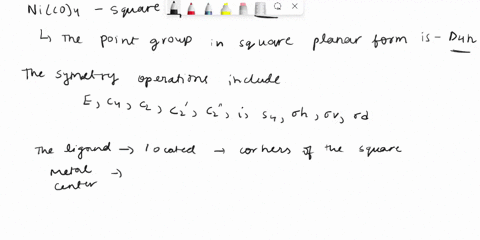 Ni(CO)4 - square
↳ The point group in square planar form is - D4h
The symetry operations include
E, C4, C2, C2', C2", i, S4, σh, σv, σd
The ligand → located → corners of the square
metal center →